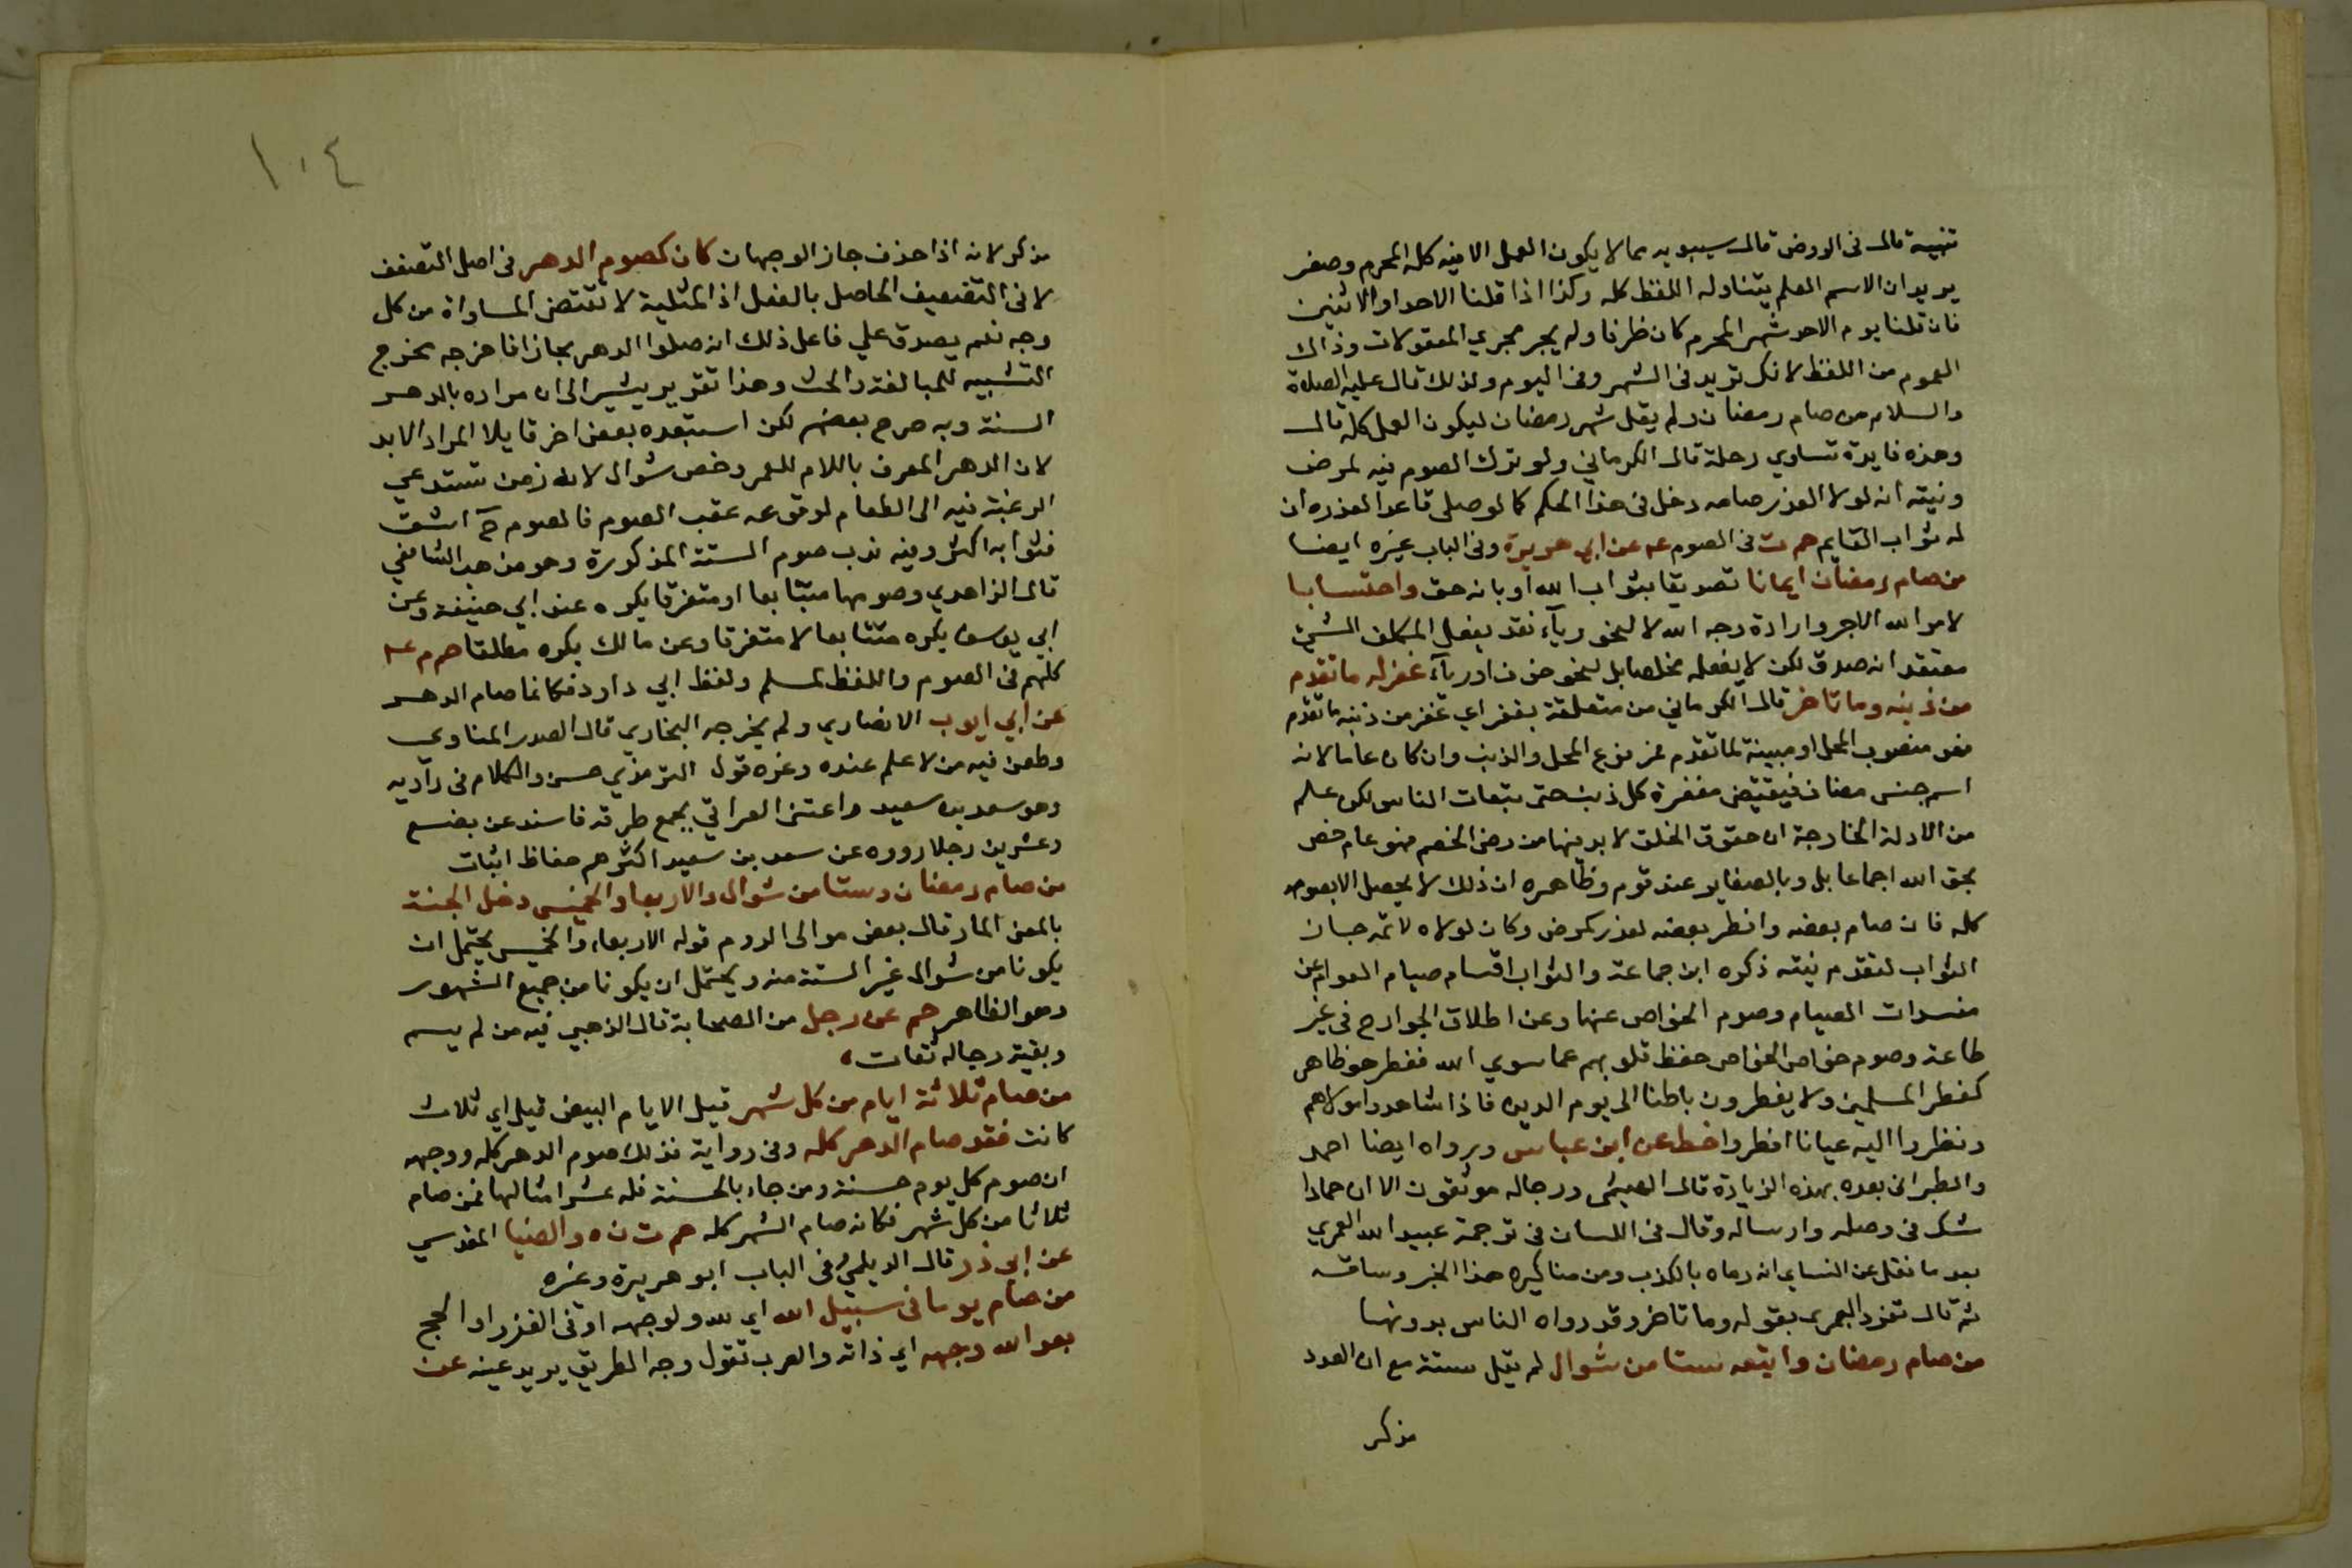 تنبيه قال في الروض قال سيبويه مما لا يكون العمل الا فيه كله المحرم وصفر
يريد ان الاسم العلم يتناوله اللفظ كله وكذا اذا قلنا الاحد او الاثنين
فان قلنا يوم الاحد شهر المحرم كان ظرفا ولم يجر مجري المفعولات وذاك
العموم من اللفظ لانك تريد في الشهر وفي اليوم ولذلك قال عليه الصلاة
والسلام من صام رمضان ولم يقل شهر رمضان ليكون العمل كله قال
وهذه فايدة تساوي رحلة قال الكرماني ولو ترك الصوم فيه لمرض
ونيته انه لولا العذر صامه دخل في هذا الحكم كما لو صلى قاعدا لعذره ان
له ثواب القايم حم ت في الصوم عن ابي هريرة وفي الباب غيره ايضا
من صام رمضان ايمانا تصديقا بثواب الله او بانه حق واحتسابا
لامر الله الاجر وارادة وجه الله لا لنحو ريآء فقد يفعل المكلف الشيئ
معتقد انه صدق لكن لا يفعله مخلصا بل لنحو خوف او ريآء غفر له ما تقدم
من ذنبه وما تاخر قال الكرماني من متعلقة بغفر اي غفر من ذنبه ما تقدم
فهو منصوب المحل او مبينة لما تقدم فمرفوع المحل والذنب وان كان عاما لانه
اسم جنس مضاف فيقتضي مغفرة كل ذنب حتى تبعات الناس لكن علم
من الادلة الخارجة ان حقوق الخلق لا بد فيها من رضى الخصم فهو عام خص
بحق الله اجماعا بل وبالصغاير عند قوم وظاهره ان ذلك لا يحصل الا بصوم
كله فان صام بعضه وافطر بعضه لعذر كمرض وكان لولاه لاتمه حاز
الثواب لتقدم نيته ذكره ابن جماعة والثواب اقسام صيام العوام عن
مفسدات الصيام وصوم الخواص عنها وعن اطلاق الجوارح في غير
طاعة وصوم خواص الخواص حفظ قلوبهم عما سوي الله ففطرهم ظاهر
كفطر المسلمين ولا يفطرون باطنا الى يوم الدين فاذا شاهدوا مولاهم
ونظروا اليه عيانا افطروا خط عن ابن عباس ورواه ايضا احمد
والطبراني بعده بهذه الزيادة قال الهيثمي ورجاله موثقون الا ان حمادا
شك في وصله وارساله وقال في اللسان في ترجمة عبيد الله العمري
بعد ما نقل عن النساي انه رماه بالكذب ومن مناكيره هذا الخبر وساقه
ثم قال تفرد العمري بقوله وما تاخر وقد رواه الناس بدونها
من صام رمضان واتبعه ستا من شوال لم يقل ستة مع ان العدد
مذكر
١٠٤
مذكر لانه اذا حذف جاز الوجهان كان كصوم الدهر في اصل التضعف
لا في التضعيف الحاصل بالفعل اذ المثلية لا تقتضي المساواة من كل
وجه نعم يصدق علي فاعل ذلك انه صام الدهر مجازا فاخرجه مخرج
التشبيه للمبالغة والحث وهذا تقرير يشير الى ان مراده بالدهر
السنة وبه صرح بعضهم لكن استبعده بعض اخر قايلا المراد الابد
لان الدهر المعرف باللام للعمر وخص شوال لانه زمن تستدعي
الرغبة فيه الى الطعام لوقوعه عقب الصوم فالصوم ح اشق
فثوابه اكثر وفيه ندب صوم الستة المذكورة وهو مذهب الشافعي
قال الزاهدي وصومها متتابعا او متفرقا يكره عند ابي حنيفة وعن
ابي يوسف يكره متتابعا لا متفرقا وعن مالك يكره مطلقا حم م ٤
كلهم في الصوم واللفظ لمسلم ولفظ ابي داود فكانما صام الدهر
عن ابي ايوب الانصاري ولم يخرجه البخاري قال الصدر المناوي
وطعن فيه من لا علم عنده وغره قول الترمذي حسن والكلام في راويه
وهو سعد بن سعيد واعتنى العراقي بجمع طرقه فاسنده عن بضع
وعشرين رجلا رووه عن سعد بن سعيد اكثرهم حفاظ اثبات
من صام رمضان وستا من شوال والاربعا والخميس دخل الجنة
بالمعنى المار قال بعض موالى الروم قوله الاربعاء والخميس يحتمل ان
يكونا من شوال غير الستة منه ويحتمل ان يكونا من جميع الشهور
وهو الظاهر حم عن رجل من الصحابة قال الذهبي فيه من لم يسم
وبقية رجاله ثقات
من صام ثلاثة ايام من كل شهر قيل الايام البيض قيل اي ثلاث
كانت فقد صام الدهر كله وفي رواية فذلك صوم الدهر كله ووجهه
ان صوم كل يوم حسنة ومن جاء بالحسنة فله عشر امثالها فمن صام
ثلاثا من كل شهر فكانه صام الشهر كله حم ت ن ه والضيا المقدسي
عن ابي ذر قال الديلمي وفي الباب ابو هريرة وغيره
من صام يوما في سبيل الله اي لله ولوجهه او في الغزو او الحج
بعد الله وجهه اي ذاته والعرب تقول وجه الطريق يريد عينه عن